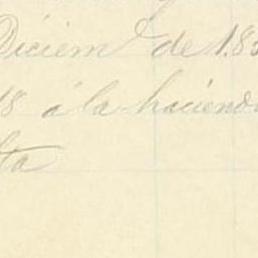 Diciem^e de 185
18 á la haciend
lta